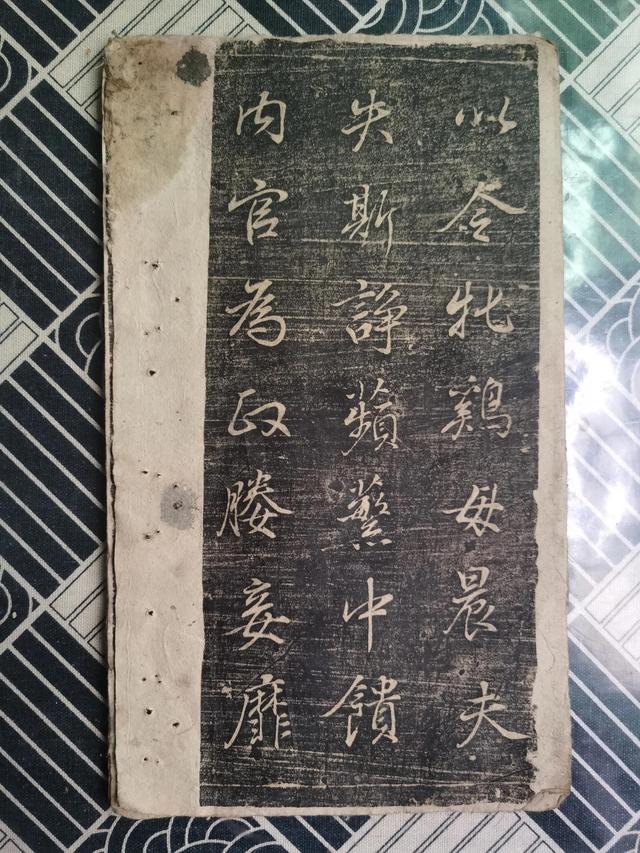 以令牝鷄毋晨夫
失斯諍蘋蘩中饋
内官為政媵妾靡